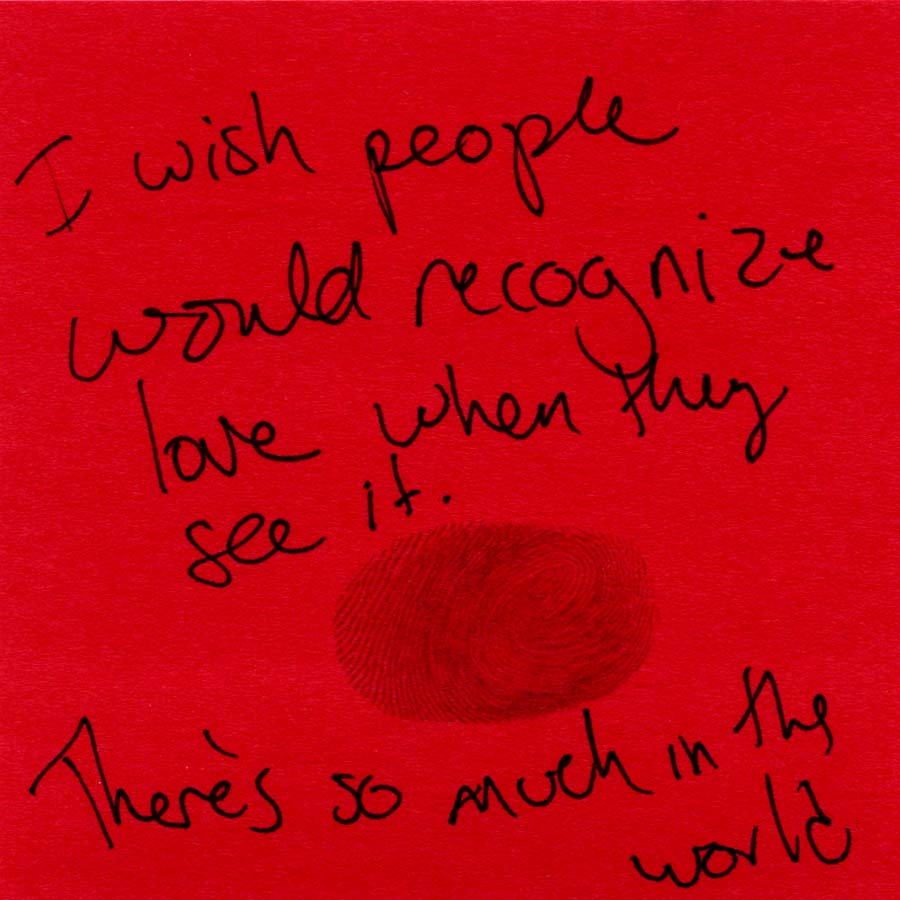 I wish people
would recognize
love when they
see it.
There's so much in the
world